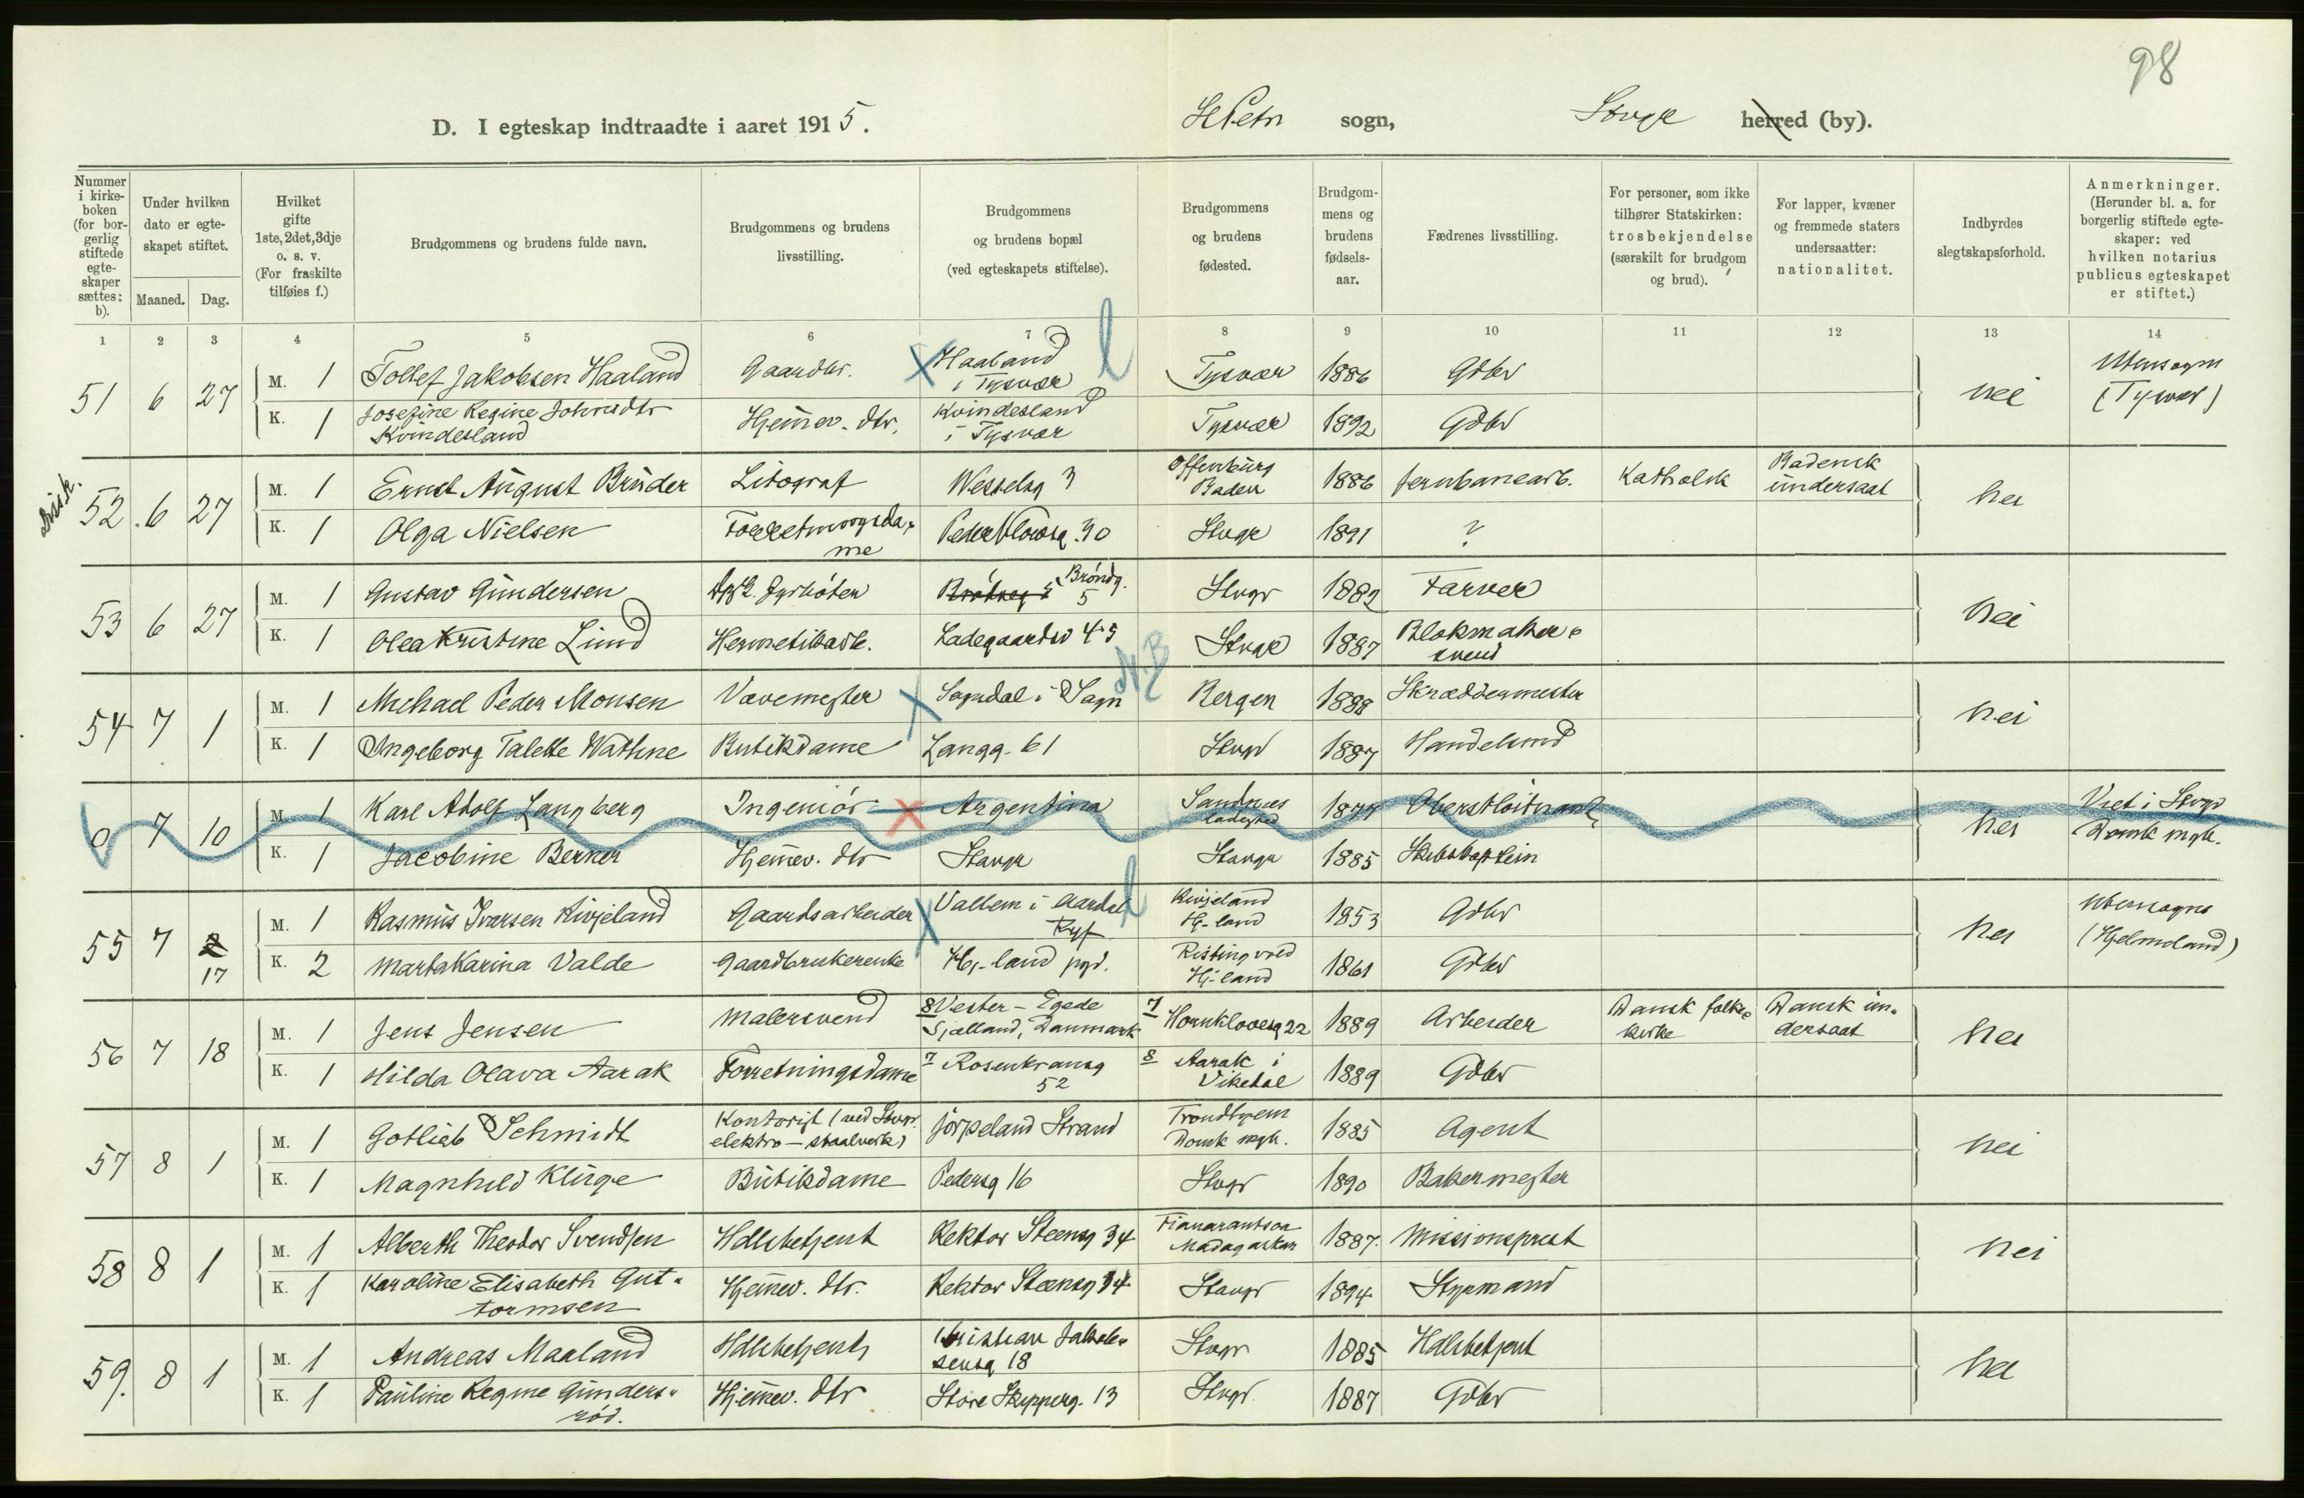 98
D. I egteskap indtraadte i aaret 1915. St. Petri sogn, Stvgr herred (by).
Nummer i kirkeboken (for borgerlig stiftede egteskaper sættes: b).
Under hvilken dato er egteskapet stiftet.
Maaned. Dag.
Hvilket gifte 1ste, 2det, 3dje o. s. v. (For fraskilte tilføies f.)
Brudgommens og brudens fulde navn.
Brudgommens og brudens livsstilling.
Brudgommens og brudens bopæl (ved egteskapets stiftelse).
Brudgommens og brudens fødested.
Brudgommens og brudens fødselsaar.
Fædrenes livsstilling.
For personer, som ikke tilhører Statskirken: trosbekjendelse (særskilt for brudgom og brud).
For lapper, kvæner og fremmede staters undersaatter: nationalitet.
Indbyrdes slegtskapsforhold.
Anmerkninger. (Herunder bl. a. for borgerlig stiftede egteskaper: ved hvilken notarius publicus egteskapet er stiftet.)
1 2 3 4 5 6 7 8 9 10 11 12 13 14
51 6 27 M. 1 Tollef Jakobsen Haaland Gaardbr. Haaland i Tysvær Tysvær 1886 Gdbr nei Utensogns (Tysvær)
K. 1 Josefine Regine Johnsdtr Kvindesland Hjemmev. dtr. Kvindesland i Tysvær Tysvær 1892 Gdbr
Diss.
52 6 27 M. 1 Ernst August Brüder Litograf Wesselsg 3 Offenburg Baden 1886 Jernbanearb. Katholsk Badensk undersaat nei
K. 1 Olga Nielsen Forretningsdame Peder Klowsg. 30 Stvgr 1891 ?
53 6 27 M. 1 Gustav Gundersen Dpsk. fyrbøter Brøndg. 5 Stvgr 1882 Farver nei
K. 1 Olea Kristine Lund Hermetikarb. Ladegaardsv 45 Stvgr 1887 Blokmakersvend
54 7 1 M. 1 Michael Peder Monsen Vævemester Sogndal i Sogn Bergen 1888 Skræddermester nei
K. 1 Ingeborg Talette Wathne Butikdame Langg. 61 Stvgr 1887 Handelsmd
0 7 10 M. 1 Karl Adolf Langberg Ingeniør Argentina Sandnes ladested 1877 Oberstløitnant nei Viet i Stvgr Domk mgh.
K. 1 Jacobine Berner Hjemmev. dtr Stavgr Stavgr 1885 Skibskaptein
55 7 2 17 M. 1 Rasmus Iversen Kivjeland Gaardsarbeider Vallem i Aardal Ryf Kivjeland Hj-land 1853 Gdbr nei Utensogns (Hjelmeland)
K. 2 Marta Karina Valde Gaardbrukerenke Hj-land pgd. Ristingvold Hj-land 1861 Gdbr
56 7 18 M. 1 Jens Jensen Malersvend 8 Vester-Egede Sjælland, Danmark 7 Hornklovesg 22 1889 Arbeider Dansk folkekirke Dansk undersaat nei
K. 1 Hilda Olava Aarak Forretningsdame 7 Rosenkransg 52 8 Aarak i Vikedal 1889 Gdbr
57 8 1 M. 1 Gotlieb Schmidt Kontorist (ved Stvgr. elektro-staalverk) Jørpeland Strand Trondhjem Domk mgh. 1885 Agent nei
K. 1 Magnhild Kluge Butikdame Pedersg 16 Stvgr 1890 Bakermester
58 8 1 M. 1 Alberth Theodor Svendsen Hdlsbetjent Rektor Steensg 34 Fianarantsoa Madagaskar 1887. Missionsprest nei
K. 1 Karoline Elisabeth Guttormsen Hjemmev. dtr. Rektor Steensg 34 Stavgr 1894 Styrmand
59. 8 1 M. 1 Andreas Maaland Hdlsbetjent Kristian Jakobsensg 18 Stvgr 1885 Hdlsbetjent nei
K. 1 Pauline Regine Gundersrød. Hjemmev. dtr Store Skipperg. 13 Stvgr. 1887 Gdbr